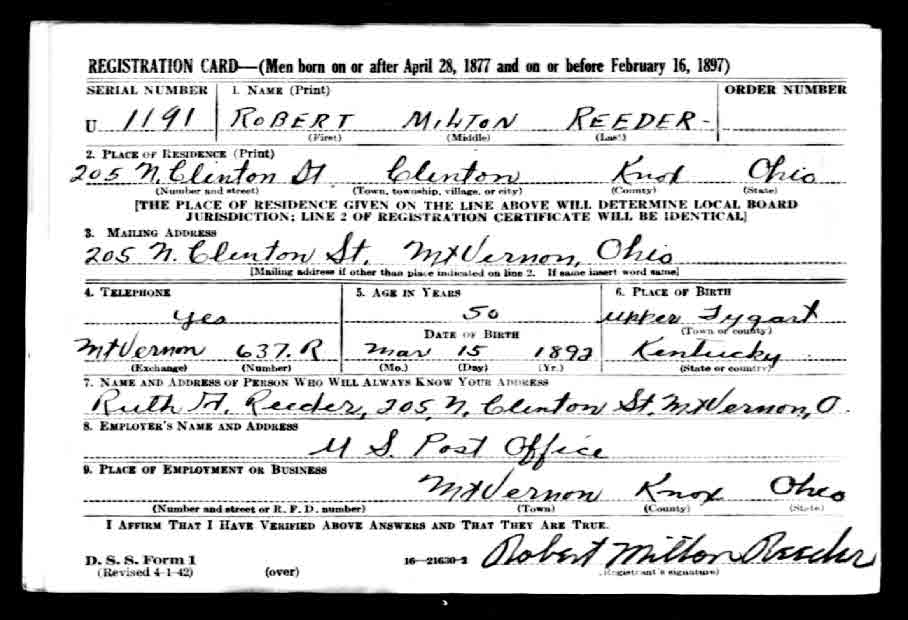 REGISTRATION CARD—(Men born on or after April 28, 1877 and on or before February 16, 1897)
SERIAL NUMBER 1. NAME (Print) ORDER NUMBER
U 1191 ROBERT MILTON REEDER-
(First) (Middle) (Last)
2. PLACE OF RESIDENCE (Print)
205 N. Clinton St Clinton Knox Ohio
(Number and street) (Town, township, village, or city) (County) (State)
[THE PLACE OF RESIDENCE GIVEN ON THE LINE ABOVE WILL DETERMINE LOCAL BOARD
JURISDICTION; LINE 2 OF REGISTRATION CERTIFICATE WILL BE IDENTICAL]
3. MAILING ADDRESS
205 N. Clinton St. Mt Vernon, Ohio
[Mailing address if other than place indicated on line 2. If same insert word same]
4. TELEPHONE 5. AGE IN YEARS 6. PLACE OF BIRTH
Yes 50 Upper Tygart
DATE OF BIRTH (Town or county)
Mt Vernon 637.R Mar 15 1892 Kentucky
(Exchange) (Number) (Mo.) (Day) (Yr.) (State or country)
7. NAME AND ADDRESS OF PERSON WHO WILL ALWAYS KNOW YOUR ADDRESS
Ruth H. Reeder, 205, N. Clinton St. Mt Vernon, O.
8. EMPLOYER'S NAME AND ADDRESS
U S. Post Office
9. PLACE OF EMPLOYMENT OR BUSINESS
Mt Vernon Knox Ohio
(Number and street or R. F. D. number) (Town) (County) (State)
I AFFIRM THAT I HAVE VERIFIED ABOVE ANSWERS AND THAT THEY ARE TRUE.
D. S. S. Form 1 16—21630-2 Robert Milton Reeder
(Revised 4-1-42) (over) (Registrant's signature)